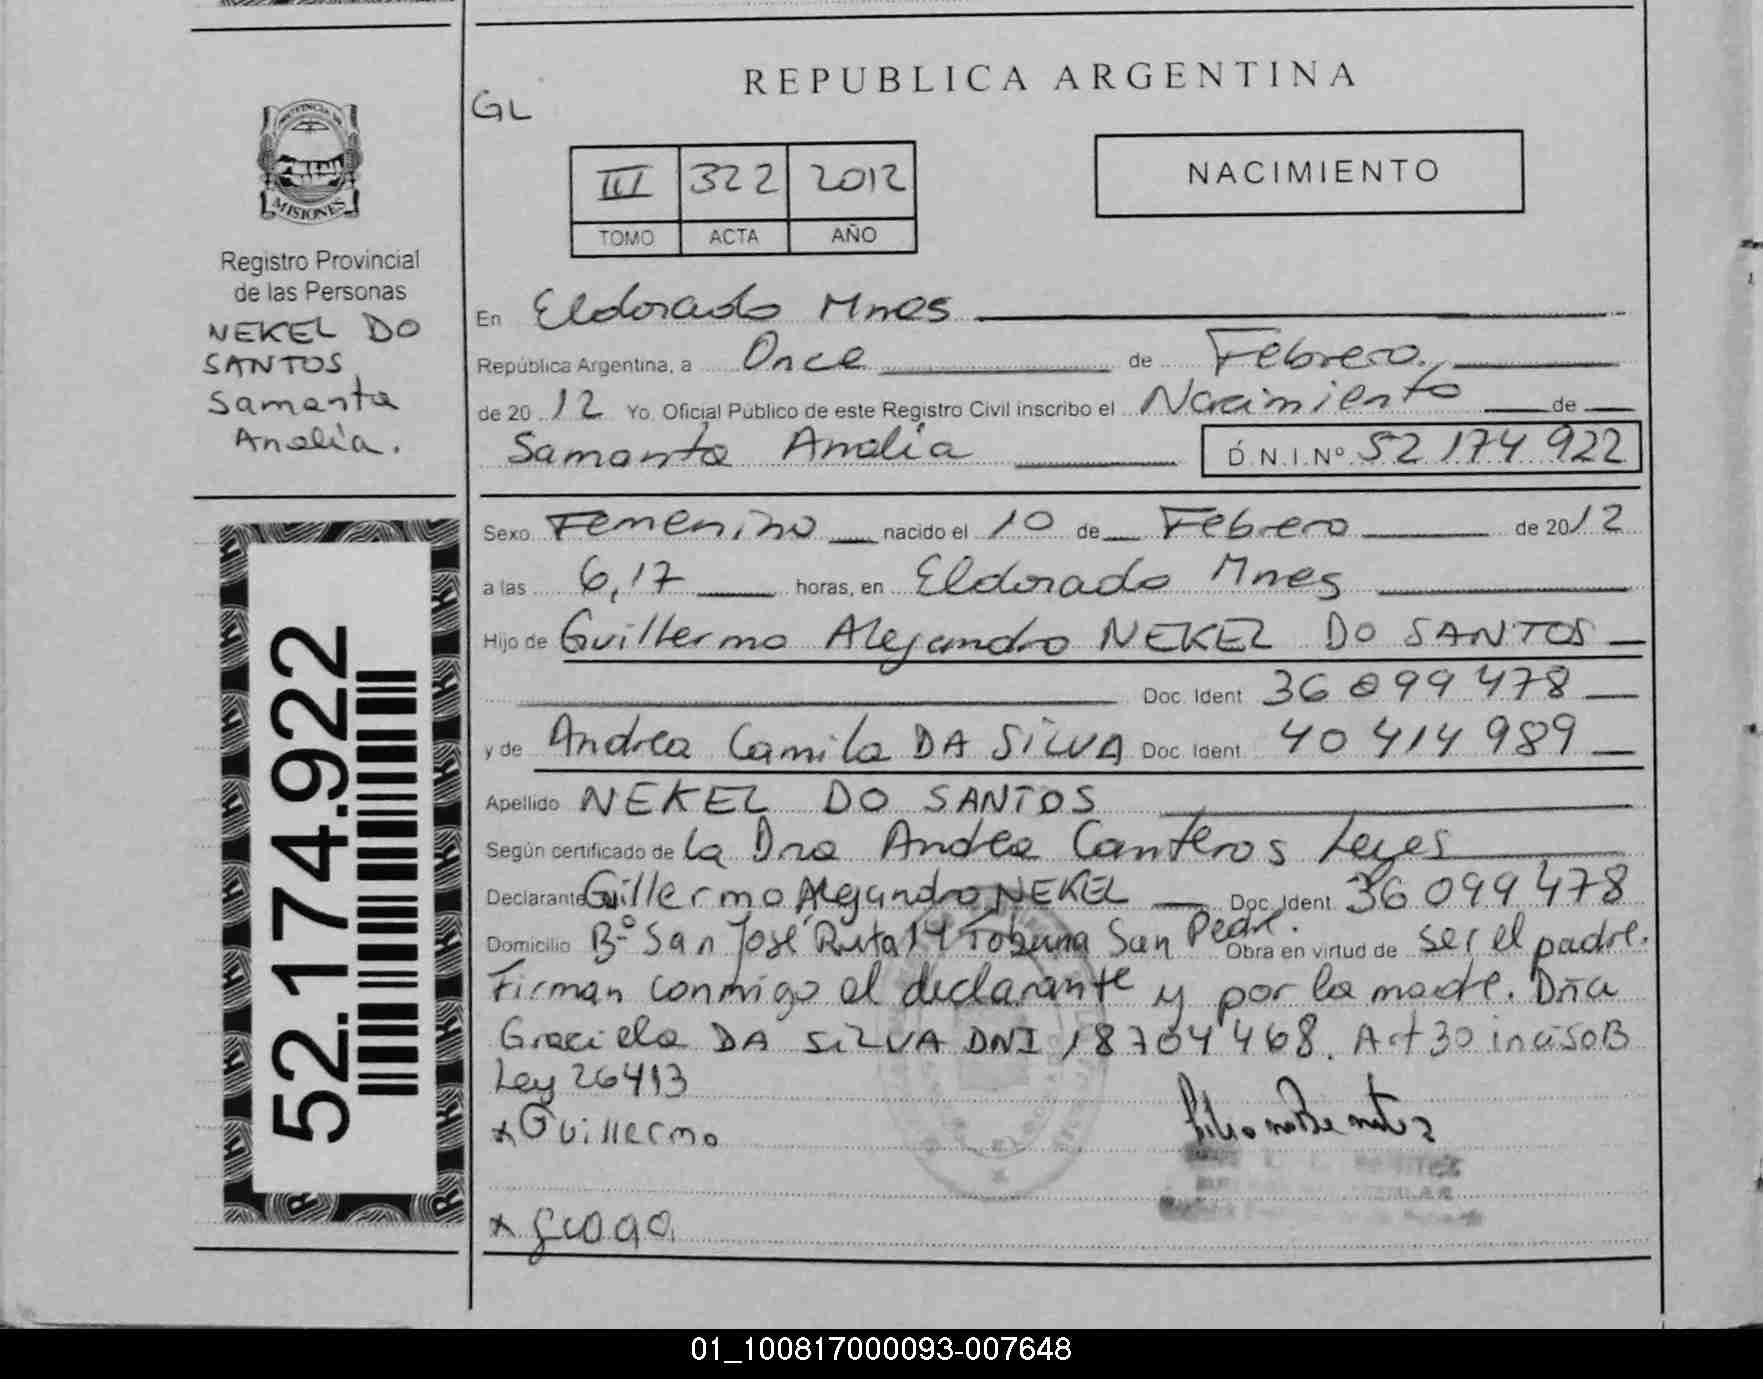 REPUBLICA ARGENTINA
GL
III 322 2012
TOMO ACTA AÑO
NACIMIENTO
PROVINCIA DE
MISIONES
Registro Provincial
de las Personas
NEKEL DO
SANTOS
Samanta
Analía.
52.174.922
En Eldorado Mnes
República Argentina, a Once de Febrero
de 2012 Yo, Oficial Público de este Registro Civil inscribo el Nacimiento de
Samanta Analia D.N.I.Nº 52 174 922
Sexo Femenino nacido el 10 de Febrero de 2012
a las 6,17 horas, en Eldorado Mnes
Hijo de Guillermo Alejandro NEKEL DO SANTOS
Doc. Ident 36 099 478
y de Andrea Camila DA SILVA Doc. Ident 40 414 989
Apellido NEKEL DO SANTOS
Según certificado de La Dra Andrea Canteros Leyes
Declarante Guillermo Alejandro NEKEL Doc. Ident 36 099 478
Domicilio Bº San José Ruta 14 Tobuna San Pedro. Obra en virtud de ser el padre.
Firman conmigo el declarante y por la madre. Dña
Graciela DA SILVA DNI 18704468. Art 30 inciso B
Ley 26413
x Guillermo
x
01_100817000093-007648